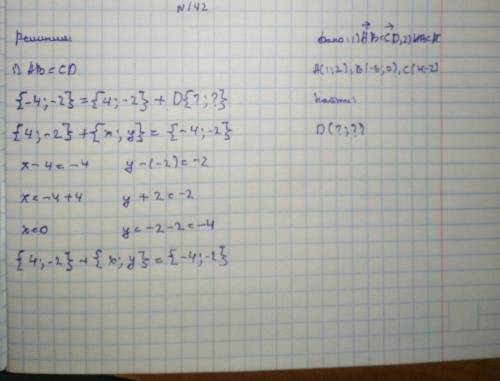 N142
Решение
1) AB=CD
{-4;-2}={4;-2}+D{?;?}
{4;-2}+{x;y}={-4;-2}
x-4=-4 y-(-2)=-2
x=-4+4 y+2=-2
x=0 y=-2-2=-4
{4;-2}+{x;y}={-4;-2}
Дано: 1) AB=CD, 2)
A(1;2), B(-3;0), C(4;-2)
Найти:
D(?;?)